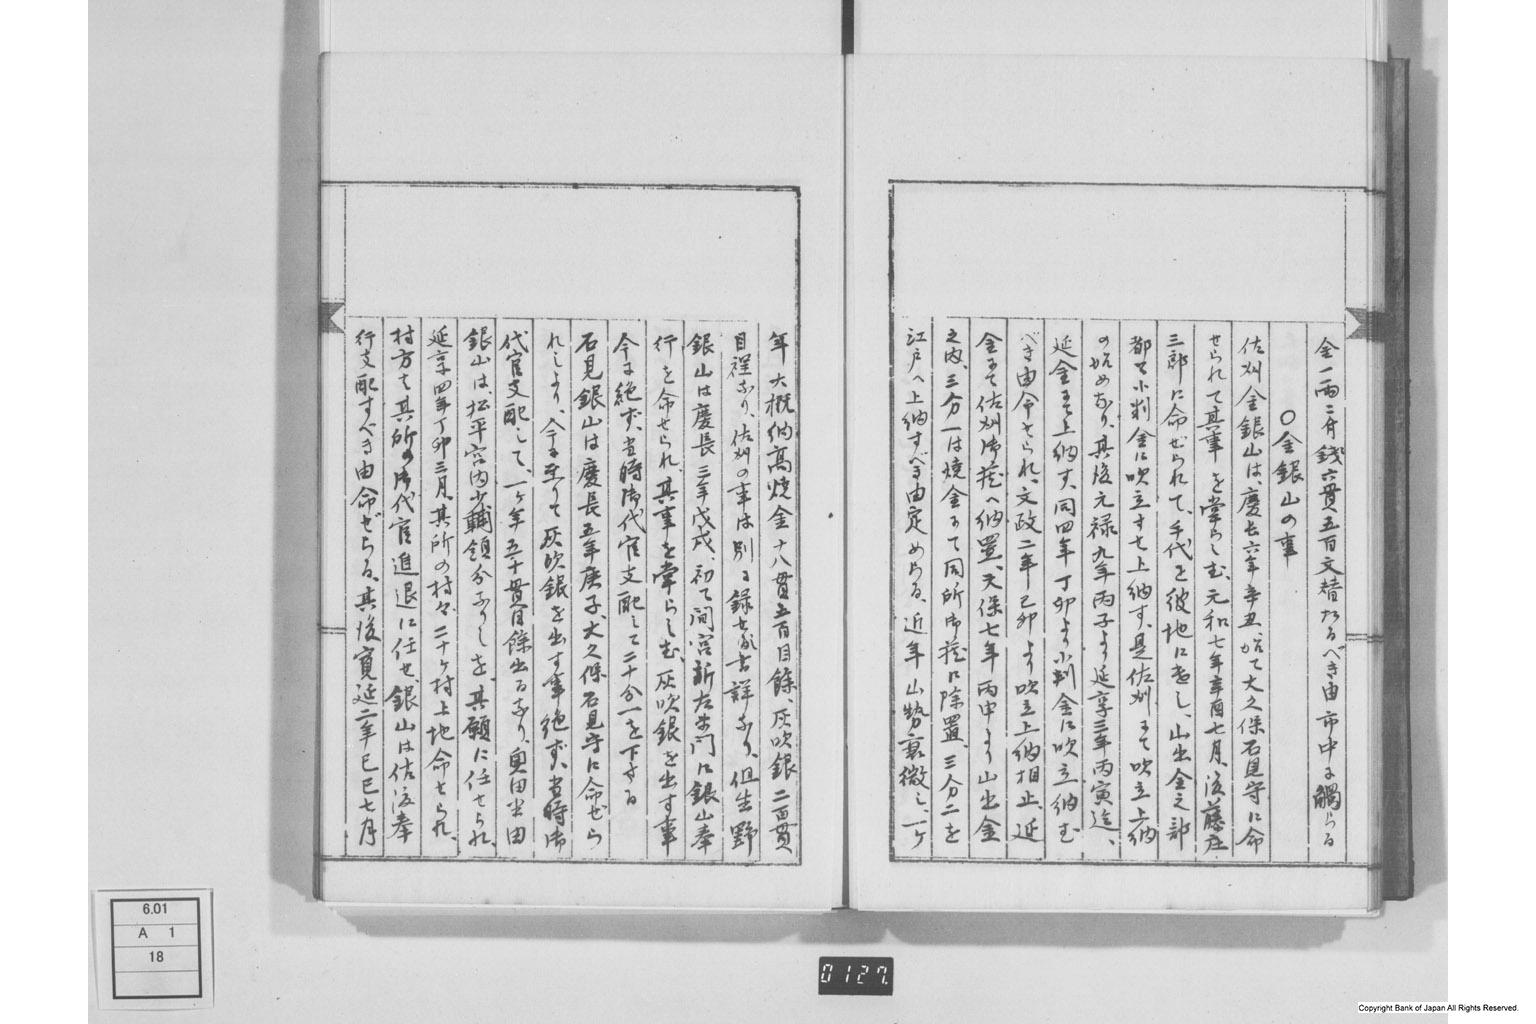 金一兩ニ付錢六貫五百文替たるべき由市中に觸らる
〇金銀山の事
佐州金銀山は、慶長六年辛丑始て大久保石見守に命
せられて其事を掌らしむ、元和七年辛酉七月、後藤庄
三郎に命ぜられて、手代を彼地に差し、山出金之部
都て小判金に吹立て上納す、是佐州にて吹立上納
の始めなり、其後元禄九年丙子より延享三年丙寅迄、
延金にて上納す、同四年丁卯より小判金に吹立納む
べき由令せられ、文政二年己卯より吹立上納相止、延
金にて佐州御藏へ納置、天保七年丙申より山出金
之内、三分一は燒金にて同所御藏に除置、三分二を
江戸へ上納すべき由定めらる、近年山勢衰微し、一ケ
年大概納高燒金十八貫五百目餘、灰吹銀二百貫
目程なり、佐州の事は別に録せる書詳なり、但生野
銀山は慶長三年戊戌、初て間宮新左衛門に銀山奉
行を命せられ、其事を掌らしむ、灰吹銀を出す事
今に絶ず、當時御代官支配して二十分一を下さる
石見銀山は慶長五年庚子、大久保石見守に命ぜら
れしより、今に至りて灰吹銀を出す事絶ず、當時御
代官支配して、一ケ年五十貫目餘出るなり、奥田半田
銀山は、松平宮内少輔領分なりしを、其願に任せられ、
延享四年丁卯三月、其所の村々二十ケ村上地命せられ、
村方を其所の御代官進退に任せ、銀山は佐渡奉
行支配すべき由命ぜらる、其後寛延二年己巳七月
6.01
A 1
18
0127.
Copyright Bank of Japan All Rights Reserved.